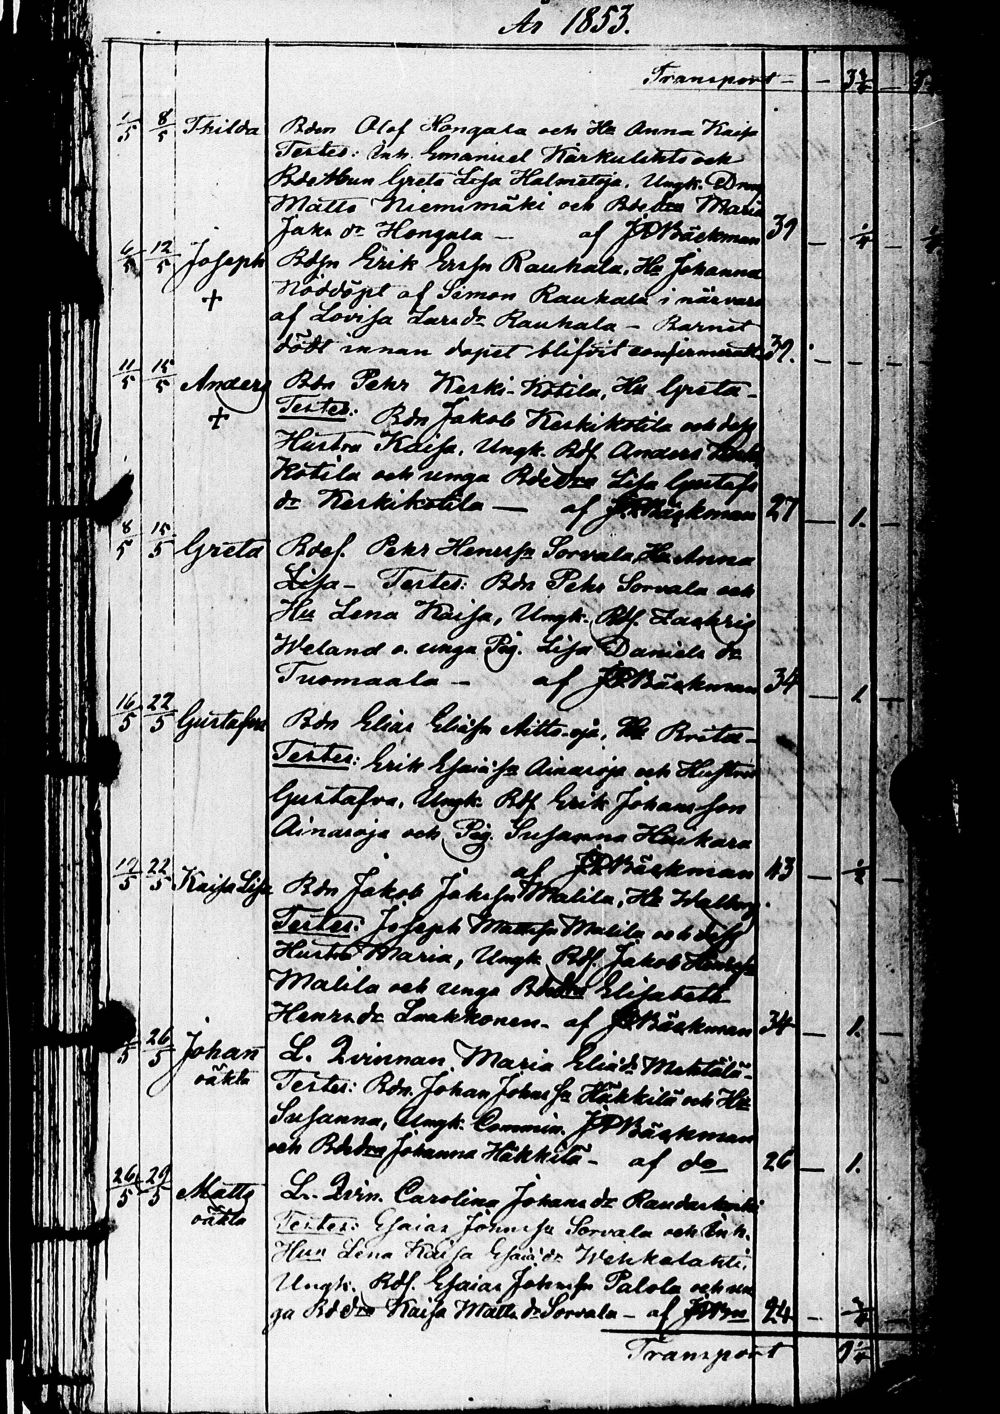 År 1853.
Transport - - 3 3/4 -
1/5 8/5 Thilda Bdn Olof Hongala och Hu Anna Kaisa
Testes: Inh. Emanuel Karkulehto och
Bde Hun Greta Lisa Halmetoja. Ungk. Dreng
Matts Niemimäki och Bde dra Maria
Jaks dr Hongala — af JPBäckman 39 — 1/4 —
6/5 12/5 Joseph Bdsn Erik Erssn Rauhala, Hu Johanna
+ Nöddöpt af Simon Rauhala i närvaro
af Lovisa Larsdr Rauhala — Barnet
dödt innan dopet blifvit confirmeradt 39. — — —
11/5 15/5 Anders Bdn Pehr Keski-Kotila, Hu Greta -
+ Testes: Bdn Jakob Keskikotila och dess
Hustru Kaisa, Ungk. Bdf. Anders
Kotila och unga Bdedra Lisa Gustafs
dr Keskikotila — af JPBäckman 27 — 1. —
8/5 15/5 Greta Bdes. Pehr Henrssn Sorvala, Hu Anna
Lisa - Testes: Bdn Pehr Sorvala och
Hu Lena Kaisa, Ungk. Bdf. Zachris
Weland o. unga Pig. Lisa Daniels dr
Tuomaala — af JPBäckman 34 — 1 —
16/5 22/5 Gustafva Bdn Elias Eliassn Aitto-oja, Hu Brita -
Testes: Erik Esaiassn Ainasoja och Hustru
Gustafva, Ungk. Bdf Erik Johansson
Ainasoja och Pig. Susanna Heikara
af JPBäckman 43 — 1/2 —
22/5 Kaisa Lisa Bdn Jakob Jakssn Malila, Hu Walborg.
Testes: Joseph Mattssn Malila och dess
Hustru Maria, Ungk. Bdf. Jakob Henrssn
Malila och unga Bdedra Elisabeth
Henrsdr Laakkonen - af JPBäckman 34 — 1. —
26/5 Johan L. Qvinnan Maria Eliædr Mehtälä -
oäkta Testes: Bdn. Johan Johnssn Häkkilä och Hu
Susanna, Ungk. Commin. JPBäckman
och Bdedra Johanna Häkkilä - af do 26 — 1. —
26/5 29/5 Matts L. Qvin. Carolina Johansdr Raudaskoski
oäkta Testes: Esaias Johnssn Sorvala och Inh.
Hun Lena Kaisa Esaiædr Wehkalahti,
Ungk. Bdf. Esaias Johnssn Palola och un
ga Bdedra Kaisa Mattsdr Sorvala - af JPBn 24 —
Transport 9 1/4